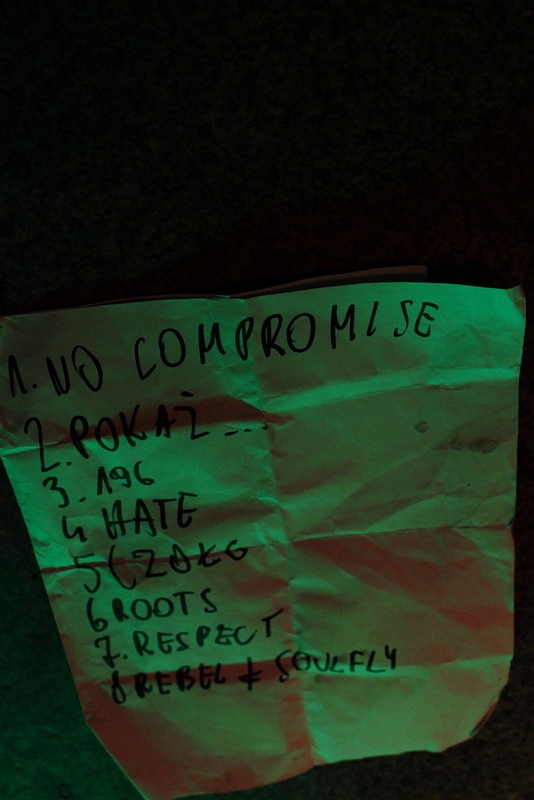 1. NO COMPROMISE
2. POKAŻ...
3. 196
4 HATE
5 CZOŁG
6 ROOTS
7. RESPECT
8 REBEL + SOULFLY